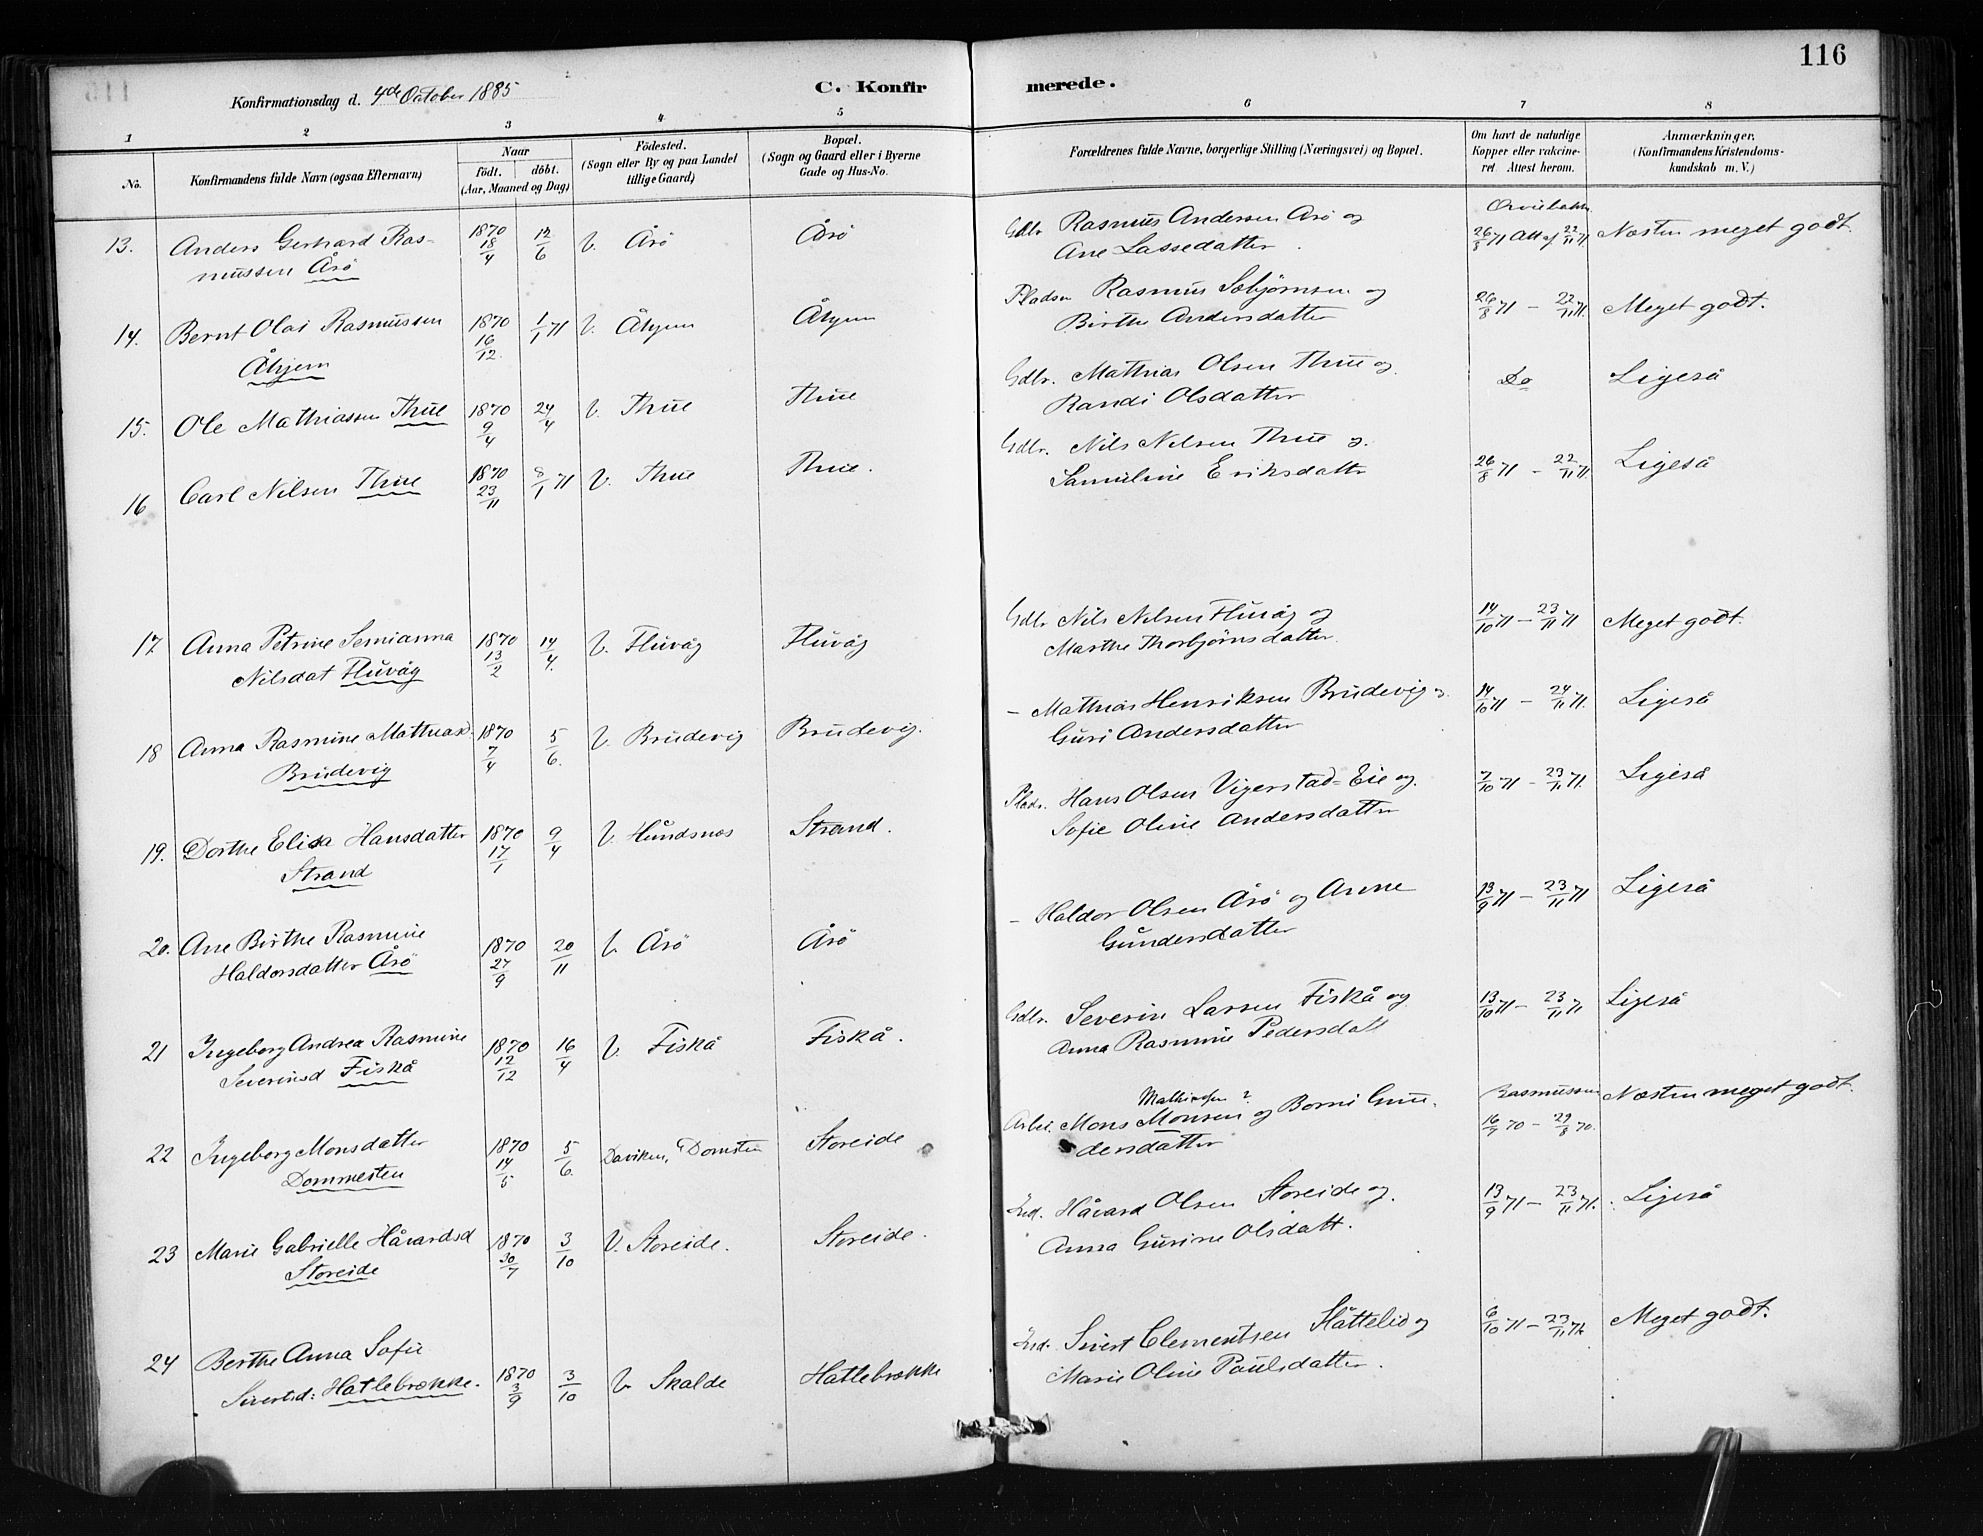 116
Konfirmationsdag d. 4de October 1885
C. Konfirmerede.
1 2 3 4 5 6 7 8
No.
Konfirmandens fulde Navn (ogsaa Efternavn)
Naar
födt. döbt.
(Aar, Maaned og Dag)
Födested.
(Sogn eller By og paa Landet
tillige Gaard)
Bopæl.
(Sogn og Gaard eller i Byerne
Gade og Hus-No.
Forældrenes fulde Navne, borgerlige Stilling (Næringsvei) og Bopæl.
Om havt de naturlige
Kopper eller vakcine-
ret Attest herom.
Anmærkninger,
(Konfirmandens Kristendoms-
kundskab m. V.)
13. Anders Gerhard Ras- 1870 18/4 12/6 V. Årö Årö Gdbr Rasmus Andersen Årö og 26/8 71 Att af 22/11 71 Næsten meget godt
mussen Årö Ane Lassedatter
14. Bernt Olai Rasmussen 1870 16/12 1/1 71 V. Åhjem Åhjem Pladsm Rasmus Sebjörnsen og 26/8 71 – 22/11 71. Meget godt.
Åhjem Birthe Andersdatter
15. Ole Mathiassen Thue 1870 9/4 24/4 V. Thue Thue Gdbr. Mathias Olsen Thue og Do Ligeså
Randi Olsdatter
16 Carl Nilsen Thue 1870 23/11 8/1 71 V. Thue Thue. Gdbr. Nils Nilsen Thue o. 26/8 71 – 22/11 71. Ligeså
Samuline Eriksdatter
17 Anna Petrine Semianna 1870 13/2 14/4. V. Fluvåg Fluvåg Gdbr Nils Nilsen Fluvåg og 14/10 71 – 23/11 71 Meget godt.
Nilsdat Fluvåg Marthe Thorbjörnsdatter.
18 Anna Rasmine Mathiasd. 1870 7/4 5/6. V. Brudevig Brudevig. – Mathias Henriksen Brudevig o. 14/10 71 – 24/11 71. Ligeså
Brudevig Guri Andersdatter
19. Dorthe Elisa Hansdatter 1870 17/1 9/4 V. Hundsnes Strand. Pladr. Hans Olsen Vigerstad-Eie og 7/10 71 – 23/11 71. Ligeså
Strand Sofie Oline Andersdatter
20. Ane Birthe Rasmine 1870 27/9 20/11 V. Årö Årö – Haldor Olsen Årö og Anne 13/9 71 – 23/11 71 Ligeså
Haldorsdatter Årö Gundersdatter
21 Ingeborg Andrea Rasmine 1870 12/12 16/4 V. Fiskå Fiskå. Gdbr. Severin Larsen Fiskå og 13/10 71 – 23/11 71 Ligeså
Severinsd Fiskå Anna Rasmine Pedersdatt
22 Ingeborg Monsdatter 1870 14/5 5/6. Daviken, Domsten Storeide Arbei. Mons Monsen og Borni Gun- Rasmussen 16/7 70 – 29/8 70. Næsten meget godt.
Dommesten dersdatter
23 Marie Gabrielle Håvardsd 1870 30/7 3/10 V. Storeide. Storeide. Ind. Håvard Olsen Storeide og 13/9 71 – 23/11 71. Ligeså
Storeide Anna Gurine Olsdatt.
24 Berthe Anna Sofie 1870 3/9 3/10 V. Skalde Hatlebrække Ind. Sivert Clementsen Slåttelid og 6/10 71 – 23/11 71. Meget godt.
Sivertsd: Hatlebrække. Marie Oline Paulsdatter.